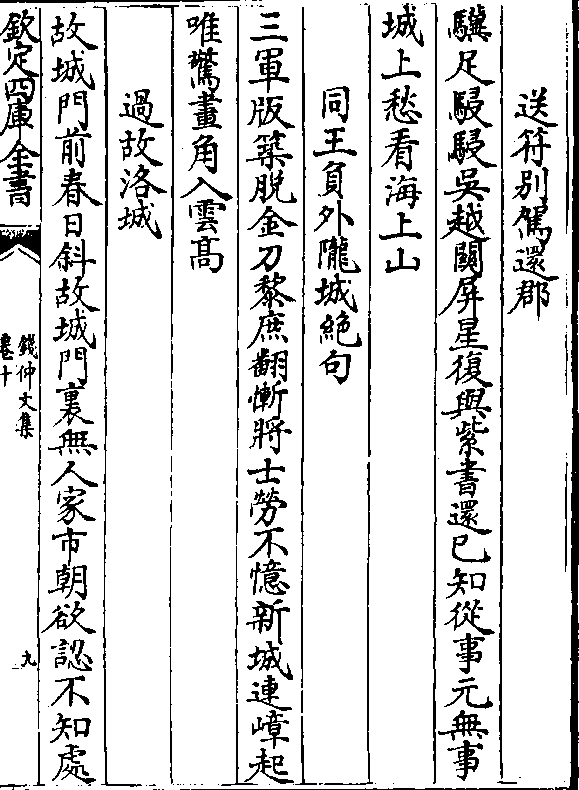 送符别駕還郡
驥足駸駸吳越關屏星復與紫書還已知從事元無事
城上愁看海上山
同王員外隴城絶句
三軍版築脫金刀黎庶翻慚將士勞不憶新城連嶂起
唯驚畫角入雲高
過故洛城
故城門前春日斜故城門裏無人家市朝欲認不知處
欽定四庫全書
錢仲文集
卷十
九